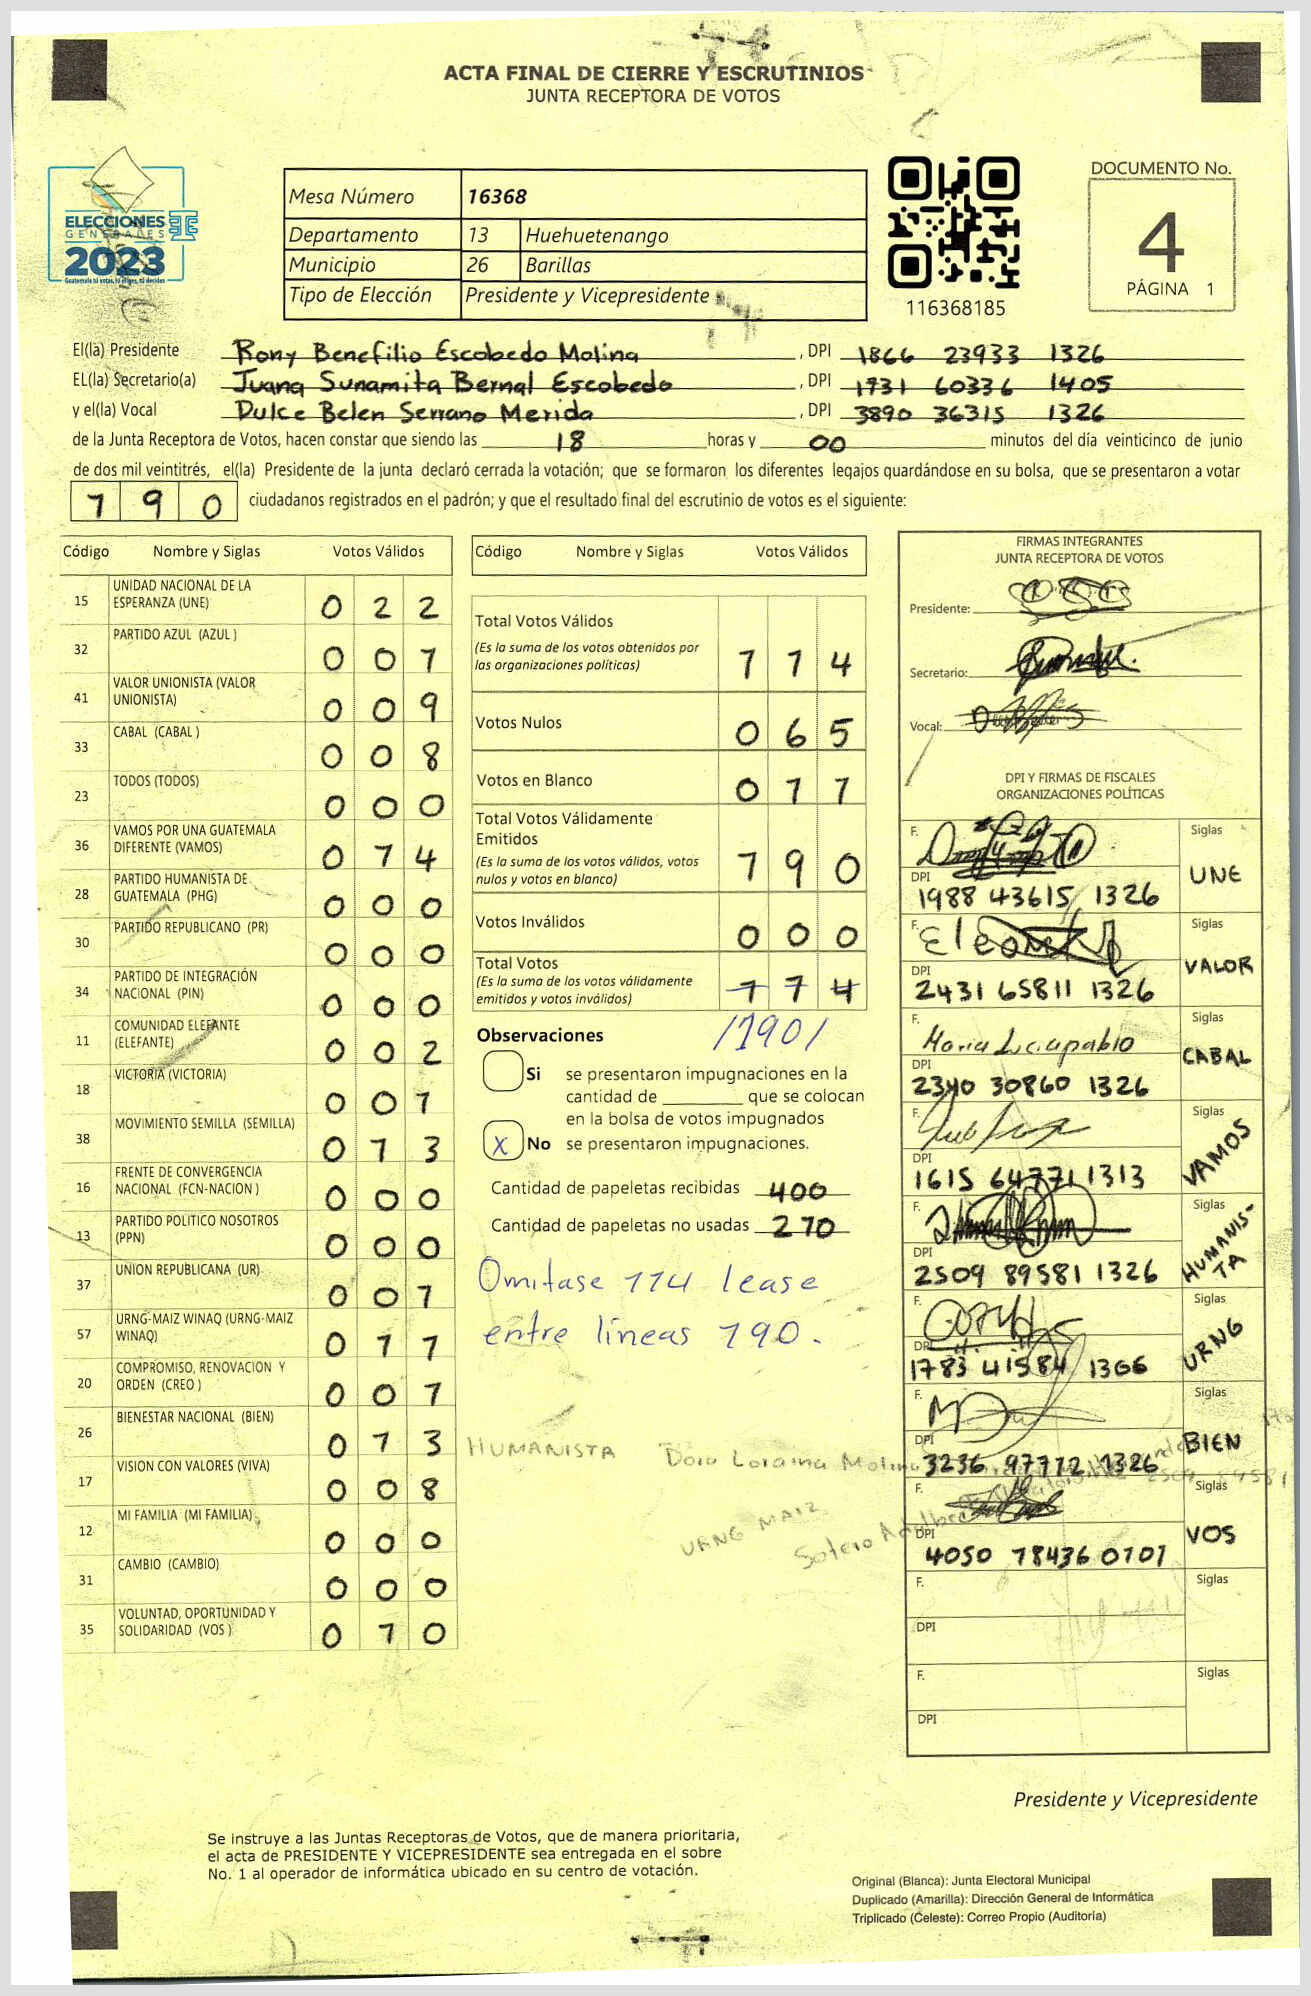 ACTA FINAL DE CIERRE Y ESCRUTINIOS
JUNTA RECEPTORA DE VOTOS
ELECCIONES
GENERALES
2023
Guatemala tú votas, tú eliges, tú decides
Mesa Número 16368
Departamento 13 Huehuetenango
Municipio 26 Barillas
Tipo de Elección Presidente y Vicepresidente
116368185
DOCUMENTO No.
4
PÁGINA 1
El(la) Presidente Rony Benefilio Escobedo Molina, DPI 1866 23933 1326
EL(la) Secretario(a) Juana Sunamita Bernal Escobedo, DPI 1731 60336 1405
y el(la) Vocal Dulce Belen Serrano Merida, DPI 3890 36315 1326
de la Junta Receptora de Votos, hacen constar que siendo las 18 horas y 00 minutos del día veinticinco de junio
de dos mil veintitrés, el(la) Presidente de la junta declaró cerrada la votación; que se formaron los diferentes legajos guardándose en su bolsa, que se presentaron a votar
190 ciudadanos registrados en el padrón; y que el resultado final del escrutinio de votos es el siguiente:
Código Nombre y Siglas Votos Válidos
15 UNIDAD NACIONAL DE LA
ESPERANZA (UNE) 022
32 PARTIDO AZUL (AZUL ) 001
41 VALOR UNIONISTA (VALOR
UNIONISTA) 009
33 CABAL (CABAL ) 008
23 TODOS (TODOS) 000
36 VAMOS POR UNA GUATEMALA
DIFERENTE (VAMOS) 014
28 PARTIDO HUMANISTA DE
GUATEMALA (PHG) 000
30 PARTIDO REPUBLICANO (PR) 000
34 PARTIDO DE INTEGRACIÓN
NACIONAL (PIN) 000
11 COMUNIDAD ELEFANTE
(ELEFANTE) 002
18 VICTORIA (VICTORIA) 001
38 MOVIMIENTO SEMILLA (SEMILLA) 013
16 FRENTE DE CONVERGENCIA
NACIONAL (FCN-NACION ) 000
13 PARTIDO POLITICO NOSOTROS
(PPN) 000
37 UNION REPUBLICANA (UR) 001
57 URNG-MAIZ WINAQ (URNG-MAIZ
WINAQ) 011
20 COMPROMISO, RENOVACION Y
ORDEN (CREO ) 001
26 BIENESTAR NACIONAL (BIEN) 013
17 VISION CON VALORES (VIVA) 008
12 MI FAMILIA (MI FAMILIA) 000
31 CAMBIO (CAMBIO) 000
35 VOLUNTAD, OPORTUNIDAD Y
SOLIDARIDAD (VOS ) 010
Código Nombre y Siglas Votos Válidos
Total Votos Válidos
(Es la suma de los votos obtenidos por
las organizaciones políticas) 114
Votos Nulos 065
Votos en Blanco 011
Total Votos Válidamente
Emitidos
(Es la suma de los votos válidos, votos
nulos y votos en blanco) 190
Votos Inválidos 000
Total Votos
(Es la suma de los votos válidamente
emitidos y votos inválidos) 114
/190/
Observaciones
Si se presentaron impugnaciones en la
cantidad de ________ que se colocan
en la bolsa de votos impugnados
X No se presentaron impugnaciones.
Cantidad de papeletas recibidas 400
Cantidad de papeletas no usadas 210
Omitase 114 lease
entre líneas 190.
HUMANISTA Dora Loraina Molina
URNG MAIZ
Sotero
FIRMAS INTEGRANTES
JUNTA RECEPTORA DE VOTOS
Presidente:
Secretario:
Vocal:
DPI Y FIRMAS DE FISCALES
ORGANIZACIONES POLÍTICAS
F. Siglas
DPI UNE
1988 43615 1326
F. Siglas
DPI VALOR
2431 65811 1326
F. Siglas
DPI CABAL
2340 30860 1326
F. Siglas
DPI VAMOS
1615 64771 1313
F. Siglas
DPI HUMANIS-
TA
2509 89581 1326
F. Siglas
DPI URNG
1783 41584 1366
F. Siglas
DPI BIEN
3236 1326
F. Siglas
DPI VOS
4050 0101
F. Siglas
DPI
F. Siglas
DPI
Presidente y Vicepresidente
Se instruye a las Juntas Receptoras de Votos, que de manera prioritaria,
el acta de PRESIDENTE Y VICEPRESIDENTE sea entregada en el sobre
No. 1 al operador de informática ubicado en su centro de votación.
Original (Blanca): Junta Electoral Municipal
Duplicado (Amarilla): Dirección General de Informática
Triplicado (Celeste): Correo Propio (Auditoría)